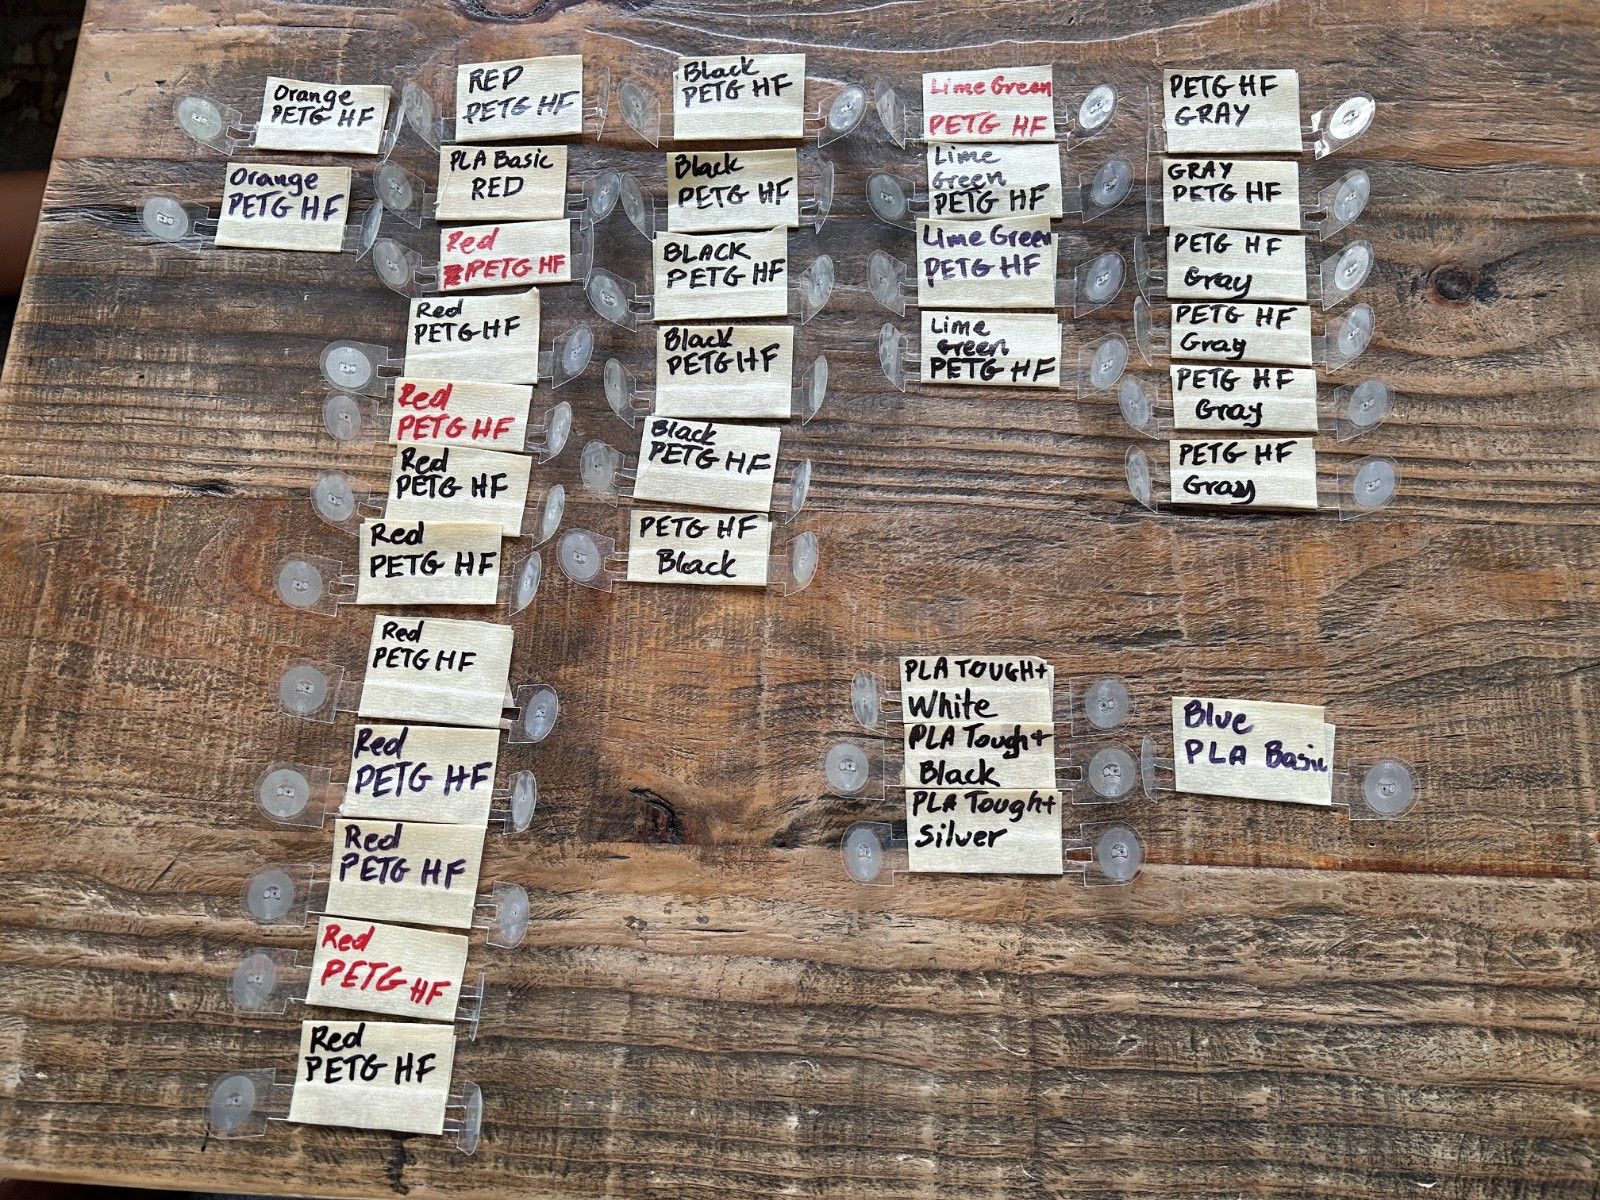 Orange
PETG HF
Orange
PETG HF
RED
PETG HF
PLA Basic
RED
Red
PETG HF
Red
PETG HF
Red
PETG HF
Red
PETG HF
Red
PETG HF
Red
PETG HF
Red
PETG HF
Red
PETG HF
Red
PETG HF
Red
PETG HF
Black
PETG HF
Black
PETG HF
BLACK
PETG HF
Black
PETG HF
Black
PETG HF
PETG HF
Black
Lime Green
PETG HF
Lime
Green
PETG HF
Lime Green
PETG HF
Lime
Green
PETG HF
PETG HF
GRAY
GRAY
PETG HF
PETG HF
Gray
PETG HF
Gray
PETG HF
Gray
PETG HF
Gray
PLA TOUGH+
White
PLA Tough+
Black
PLA Tough+
Silver
Blue
PLA Basic